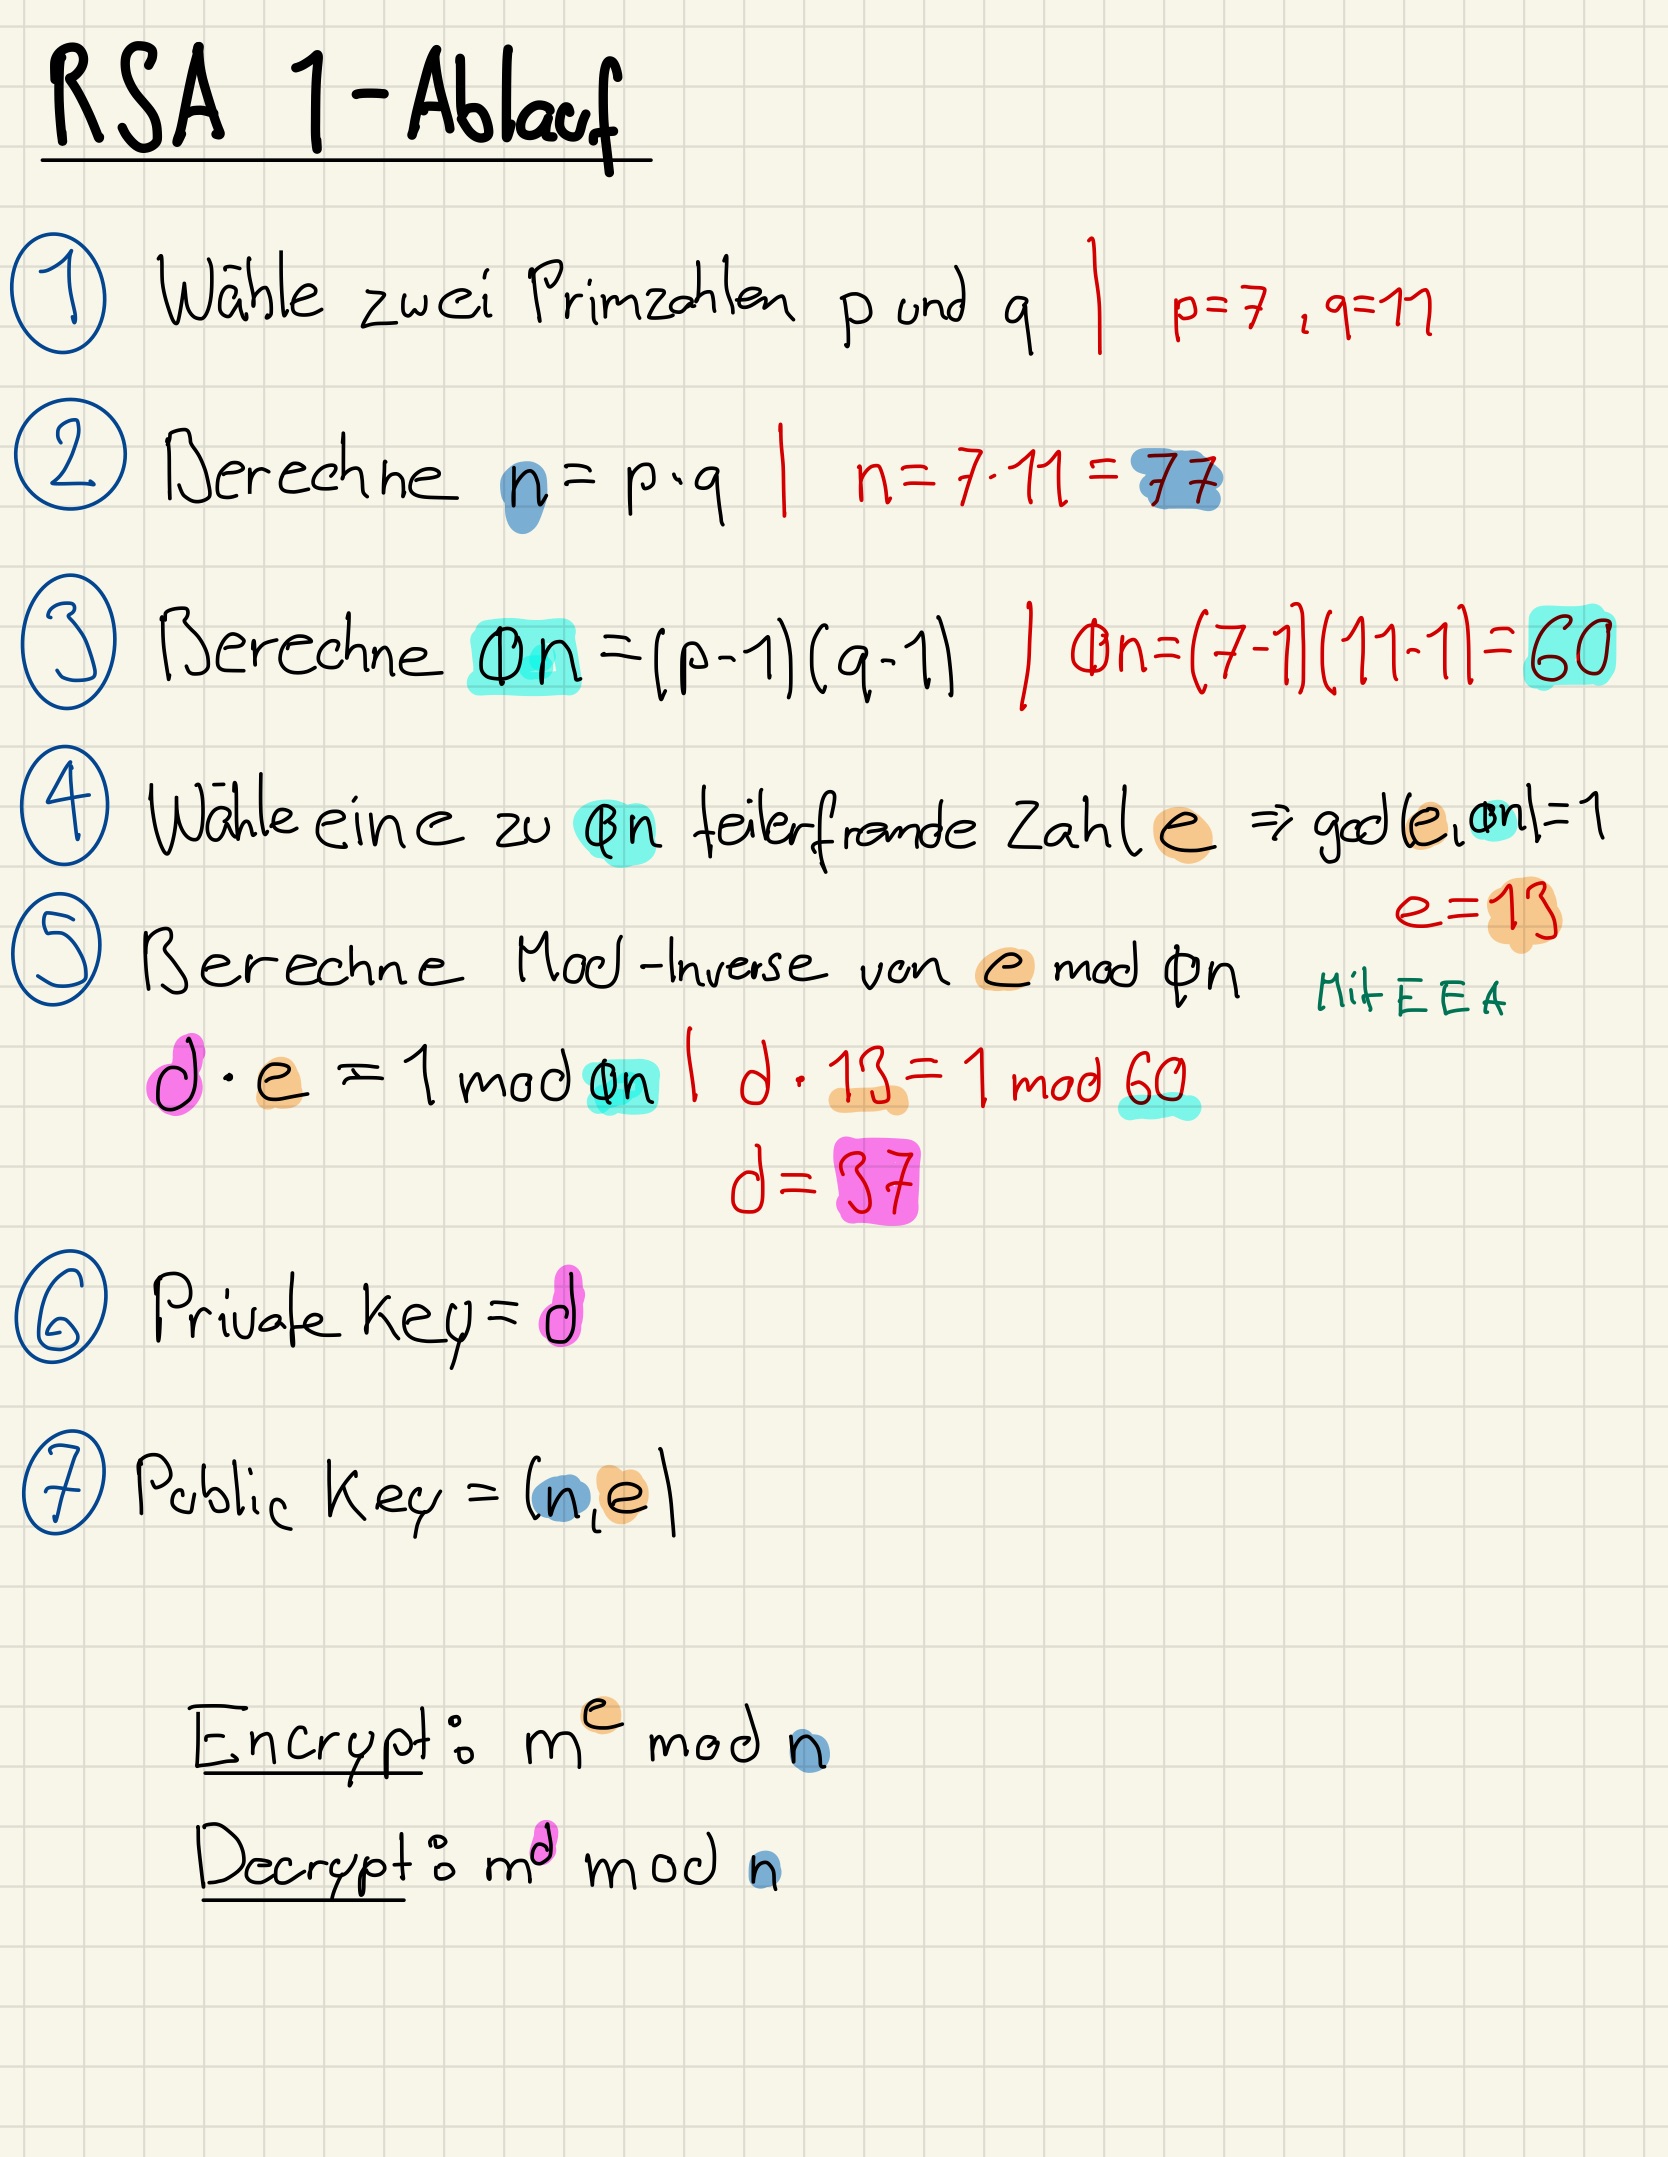 RSA 1-Ablauf
① Wähle zwei Primzahlen p und q | p=7, q=11
② Berechne n = p·q | n=7·11=77
③ Berechne Φn =(p-1)(q-1) | Φn=(7-1)(11-1)=60
④ Wähle eine zu Φn teilerfremde Zahl e ⇒ gcd(e,Φn)=1
e=13
⑤ Berechne Mod-Inverse von e mod Φn Mit EEA
d · e = 1 mod Φn | d · 13 = 1 mod 60
d = 37
⑥ Private Key = d
⑦ Public Key = (n,e)
Encrypt: m^e mod n
Decrypt: m^d mod n